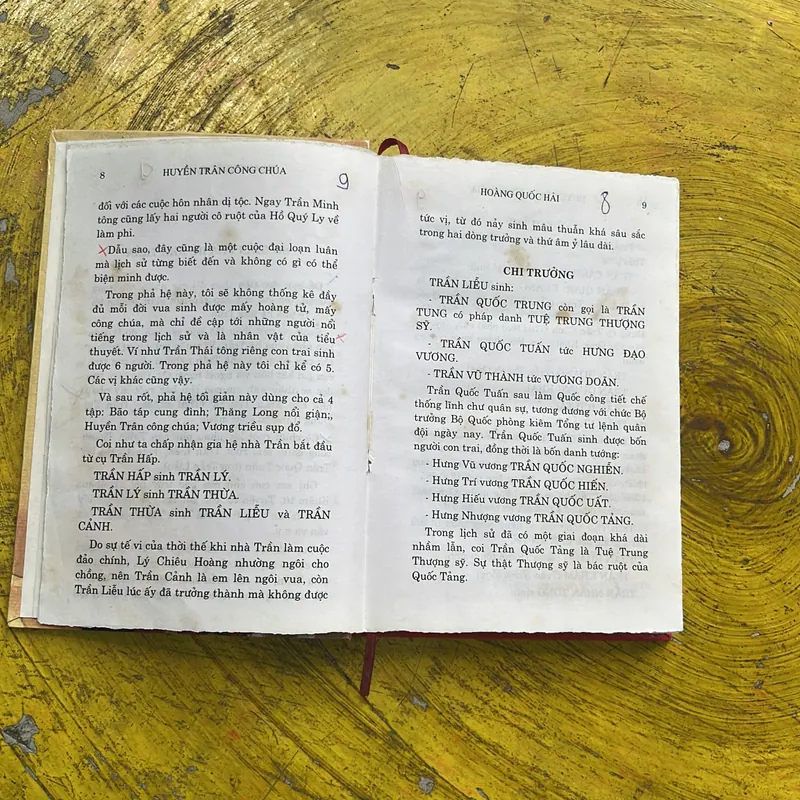 8 HUYỀN TRÂN CÔNG CHÚA
9
đối với các cuộc hôn nhân dị tộc. Ngay Trần Minh
tông cũng lấy hai người cô ruột của Hồ Quý Ly về
làm phi.
Dẫu sao, đây cũng là một cuộc đại loạn luân
mà lịch sử từng biết đến và không có gì có thể
biện minh được.
Trong phả hệ này, tôi sẽ không thống kê đầy
đủ mỗi đời vua sinh được mấy hoàng tử, mấy
công chúa, mà chỉ đề cập tới những người nổi
tiếng trong lịch sử và là nhân vật của tiểu
thuyết. Ví như Trần Thái tông riêng con trai sinh
được 6 người. Trong phả hệ này tôi chỉ kể có 5.
Các vị khác cũng vậy.
Và sau rốt, phả hệ tối giản này dùng cho cả 4
tập: Bão táp cung đình; Thăng Long nổi giận;,
Huyền Trân công chúa; Vương triều sụp đổ.
Coi như ta chấp nhận gia hệ nhà Trần bắt đầu
từ cụ Trần Hấp.
TRẦN HẤP sinh TRẦN LÝ.
TRẦN LÝ sinh TRẦN THỪA.
TRẦN THỪA sinh TRẦN LIỄU và TRẦN
CẢNH.
Do sự tế vi của thời thế khi nhà Trần làm cuộc
đảo chính, Lý Chiêu Hoàng nhường ngôi cho
chồng, nên Trần Cảnh là em lên ngôi vua, còn
Trần Liễu lúc ấy đã trưởng thành mà không được
HOÀNG QUỐC HẢI 9
8
tức vị, từ đó nảy sinh mâu thuẫn khá sâu sắc
trong hai dòng trưởng và thứ âm ỷ lâu dài.
CHI TRƯỞNG
TRẦN LIỄU sinh:
- TRẦN QUỐC TRUNG còn gọi là TRẦN
TUNG có pháp danh TUỆ TRUNG THƯỢNG
SỸ.
- TRẦN QUỐC TUẤN tức HƯNG ĐẠO
VƯƠNG.
- TRẦN VŨ THÀNH tức VƯƠNG DOÃN.
Trần Quốc Tuấn sau làm Quốc công tiết chế
thống lĩnh chư quân sự, tương đương với chức Bộ
trưởng Bộ Quốc phòng kiêm Tổng tư lệnh quân
đội ngày nay. Trần Quốc Tuấn sinh được bốn
người con trai, đồng thời là bốn danh tướng:
- Hưng Vũ vương TRẦN QUỐC NGHIỄN.
- Hưng Trí vương TRẦN QUỐC HIẾN.
- Hưng Hiếu vương TRẦN QUỐC UẤT.
- Hưng Nhượng vương TRẦN QUỐC TẢNG.
Trong lịch sử đã có một giai đoạn khá dài
nhầm lẫn, coi Trần Quốc Tảng là Tuệ Trung
Thượng sỹ. Sự thật Thượng sỹ là bác ruột của
Quốc Tảng.